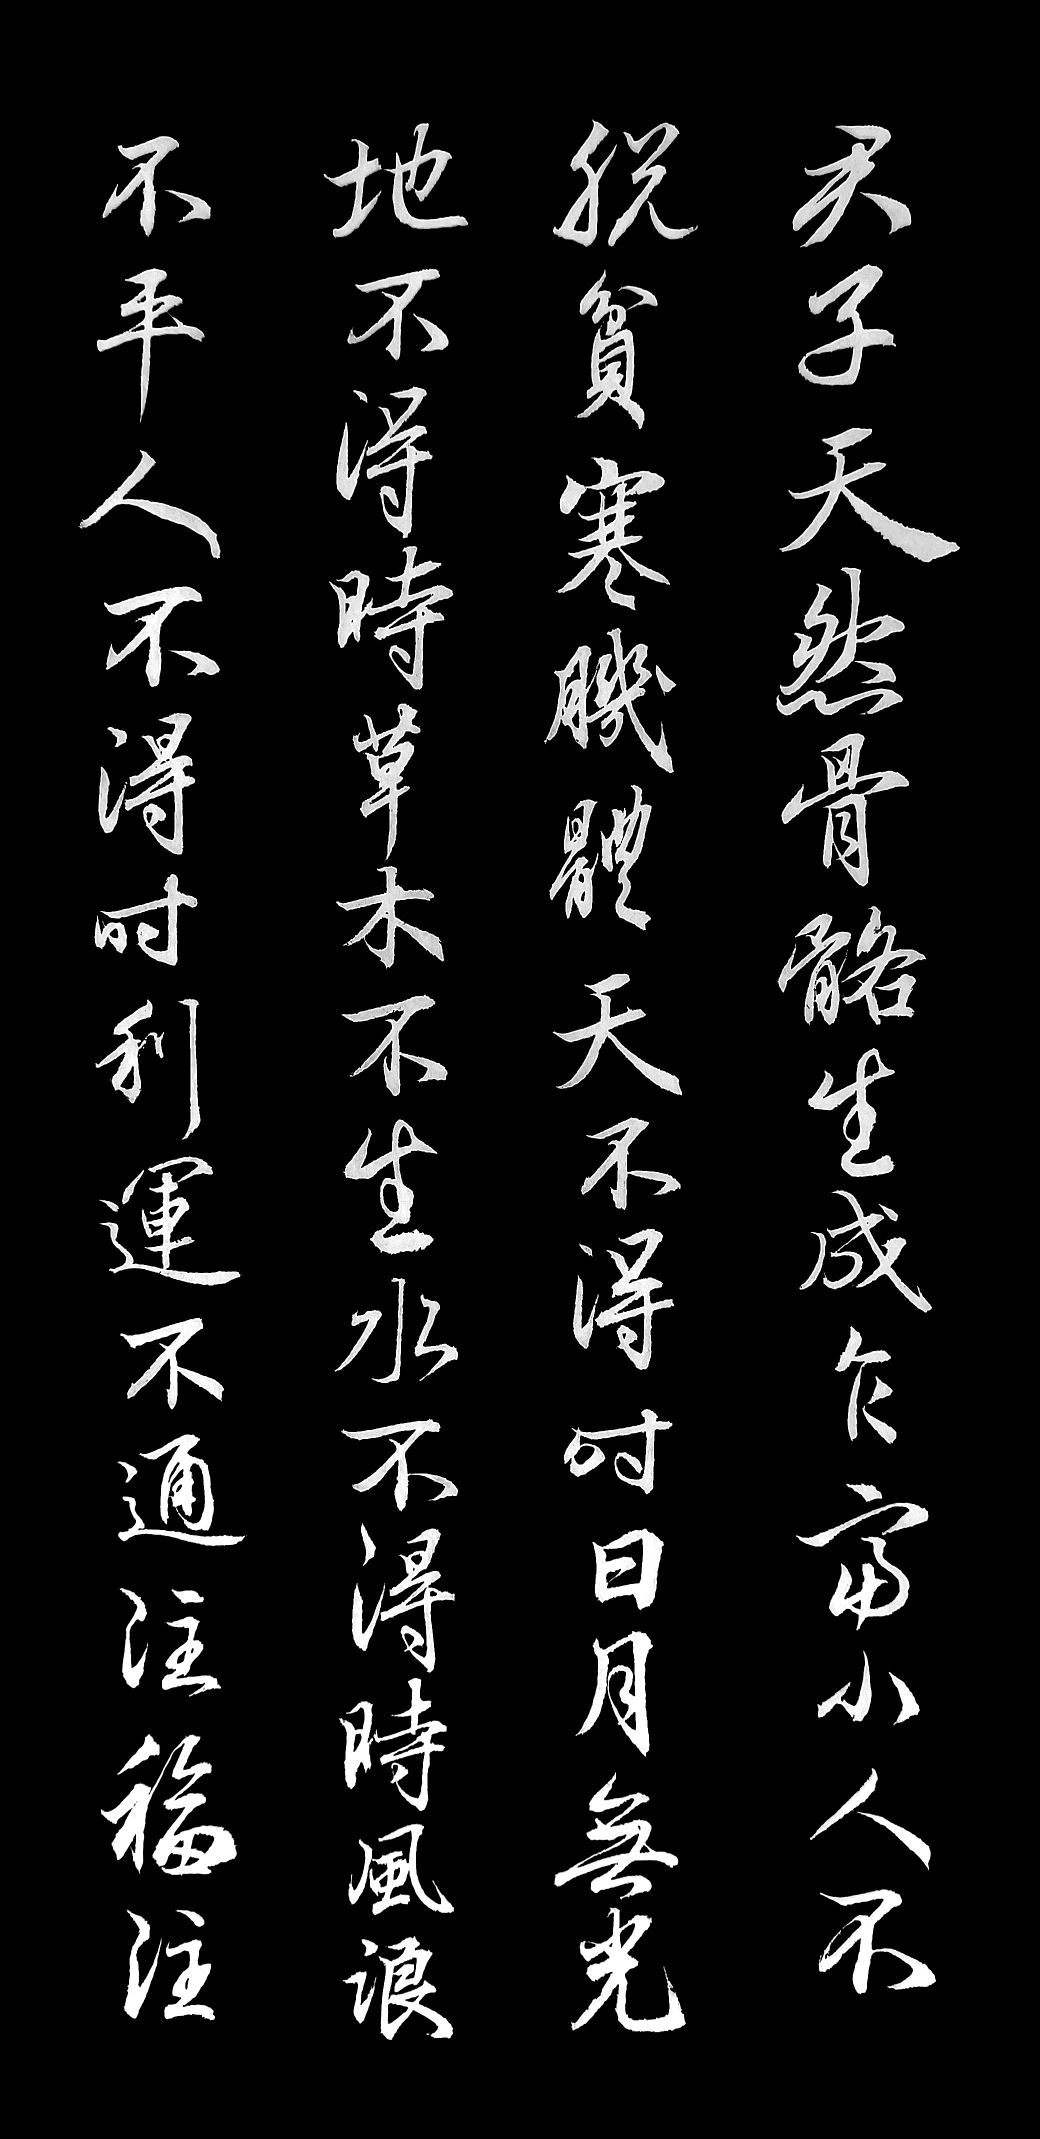 君子天然骨骼生成乍富小人不
脱貧寒肌體天不得时日月無光
地不得時草木不生水不得時風浪
不平人不得时利運不通注福注